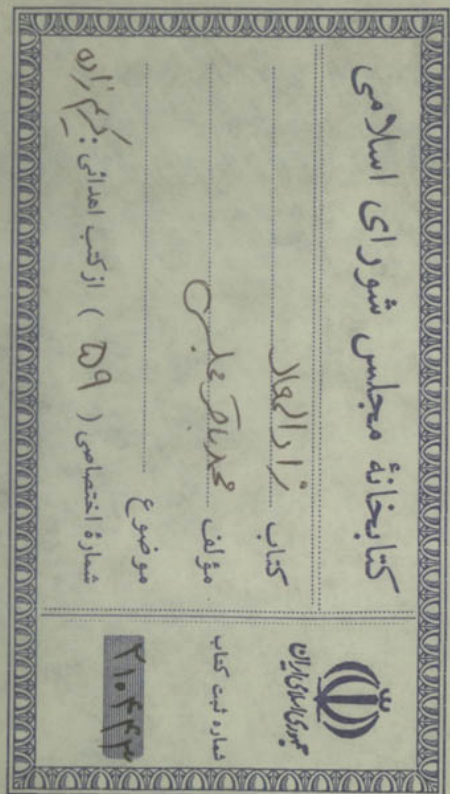 کتابخانهٔ مجلس شورای اسلامی
کتاب زاد المعاد
مؤلف محمد باقر مجلسی
موضوع
شمارهٔ اختصاصی ( ۵۹ ) از کتب اهدائی : کریم زاده
جمهوری اسلامی ایران
شماره ثبت کتاب
۲۱۰۴۴۳